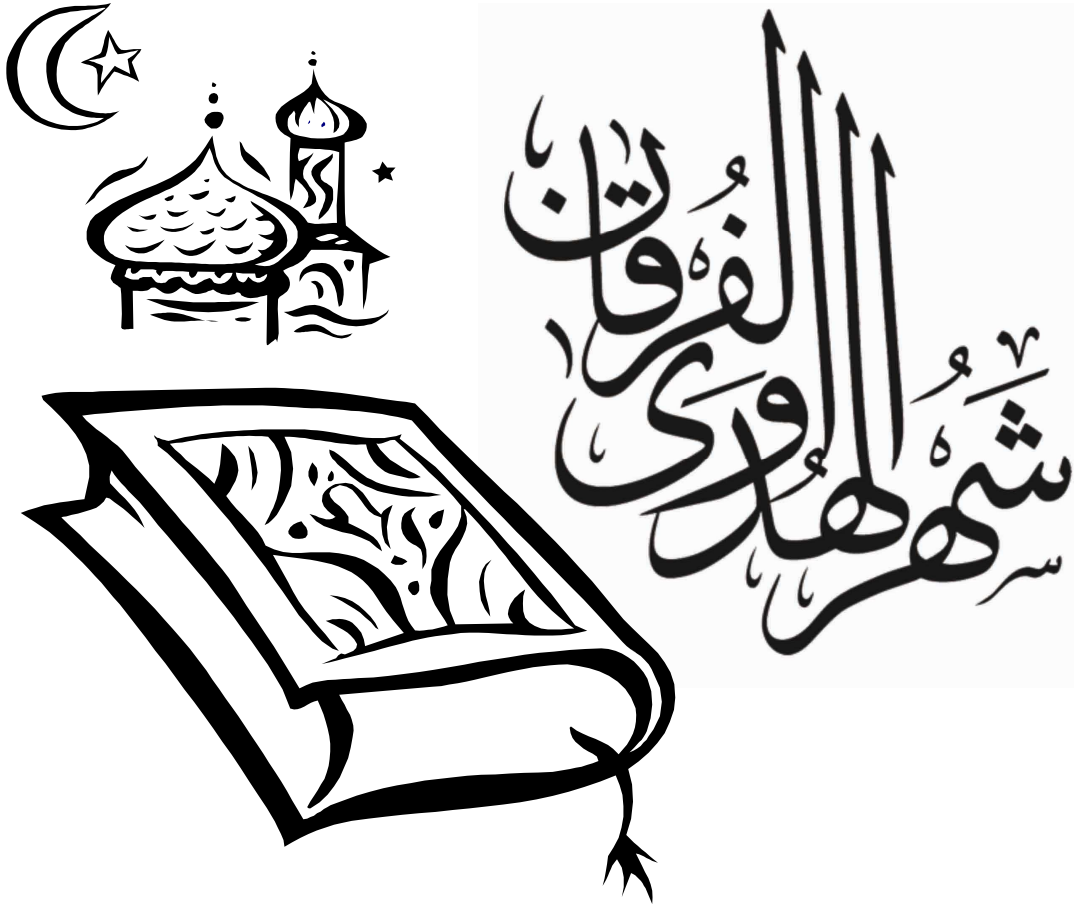 شهر الهدى والفرقان